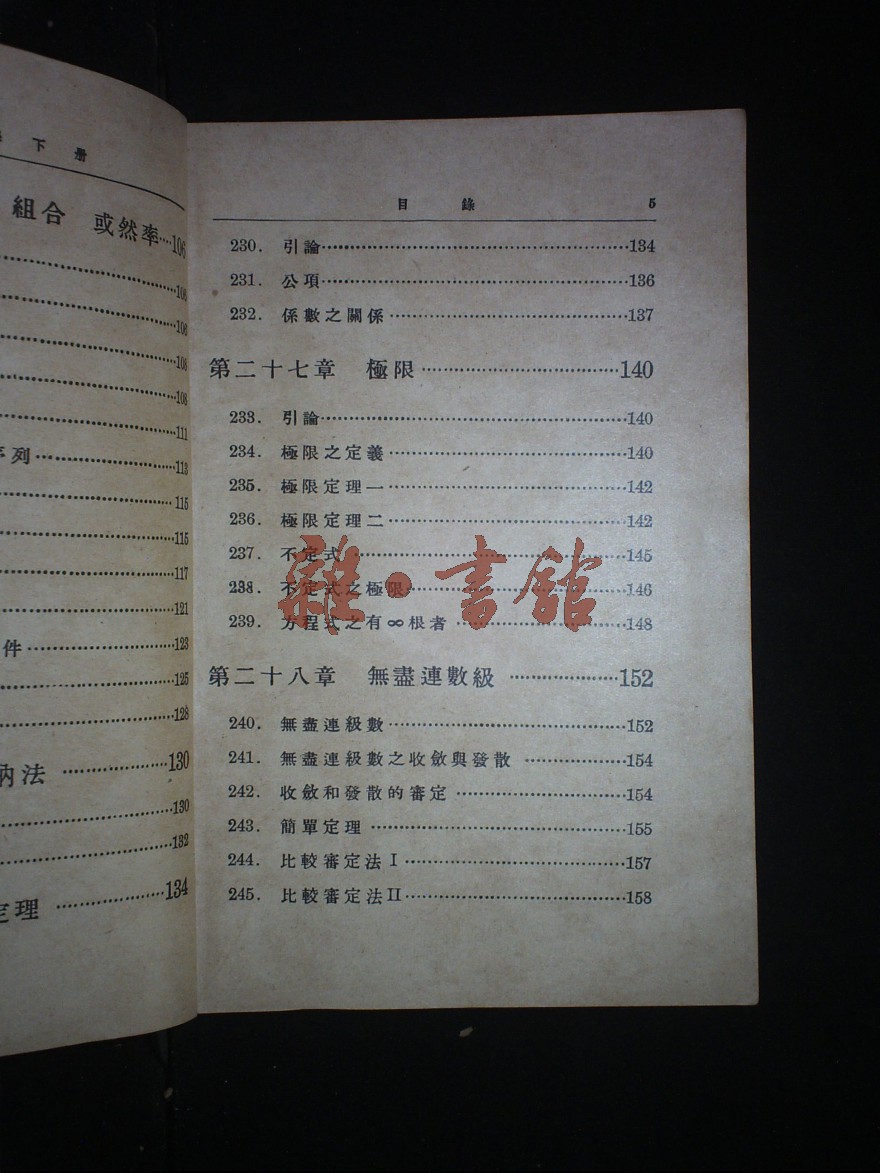 下冊
組合 或然率····106
····106
····106
····108
····108
····111
序列····113
····115
····115
····117
····121
件····123
····125
····128
納法····130
····130
····132
定理····134
目錄 5
230. 引論····134
231. 公項····136
232. 係數之關係····137
第二十七章 極限····140
233. 引論····140
234. 極限之定義····140
235. 極限定理一····142
236. 極限定理二····142
237. 不定式····145
238. 不定式之極限····146
239. 方程式之有∞根者····148
第二十八章 無盡連數級····152
240. 無盡連級數····152
241. 無盡連級數之收斂與發散····154
242. 收斂和發散的審定····154
243. 簡單定理····155
244. 比較審定法 I····157
245. 比較審定法 II····158
雜·書館